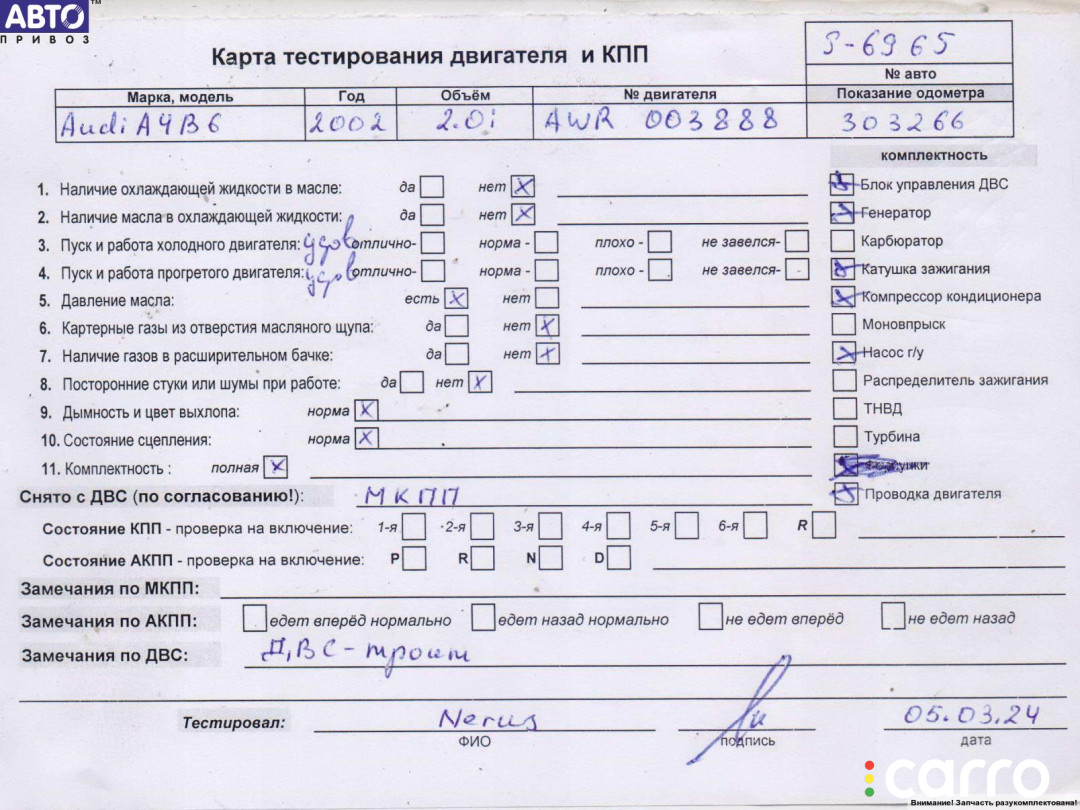 АВТО™
ПРИВОЗ
Карта тестирования двигателя и КПП
S-6965
№ авто
Марка, модель Год Объём № двигателя Показание одометра
Audi A4B6 2002 2.0i AWR 003888 303266
комплектность
1. Наличие охлаждающей жидкости в масле: да нет Блок управления ДВС
2. Наличие масла в охлаждающей жидкости: да нет Генератор
3. Пуск и работа холодного двигателя: удов отлично- норма - плохо - не завелся- Карбюратор
4. Пуск и работа прогретого двигателя: удов отлично- норма - плохо - не завелся- Катушка зажигания
5. Давление масла: есть нет Компрессор кондиционера
6. Картерные газы из отверстия масляного щупа: да нет Моновпрыск
7. Наличие газов в расширительном бачке: да нет Насос г/у
8. Посторонние стуки или шумы при работе: да нет Распределитель зажигания
9. Дымность и цвет выхлопа: норма ТНВД
10. Состояние сцепления: норма Турбина
11. Комплектность : полная
Снято с ДВС (по согласованию!): МКПП Проводка двигателя
Состояние КПП - проверка на включение: 1-я 2-я 3-я 4-я 5-я 6-я R
Состояние АКПП - проверка на включение: P R N D
Замечания по МКПП:
Замечания по АКПП: едет вперёд нормально едет назад нормально не едет вперёд не едет назад
Замечания по ДВС: ДВС-троит
Тестировал: 05.03.24
ФИО подпись дата
carro
Внимание! Запчасть разукомплектована!